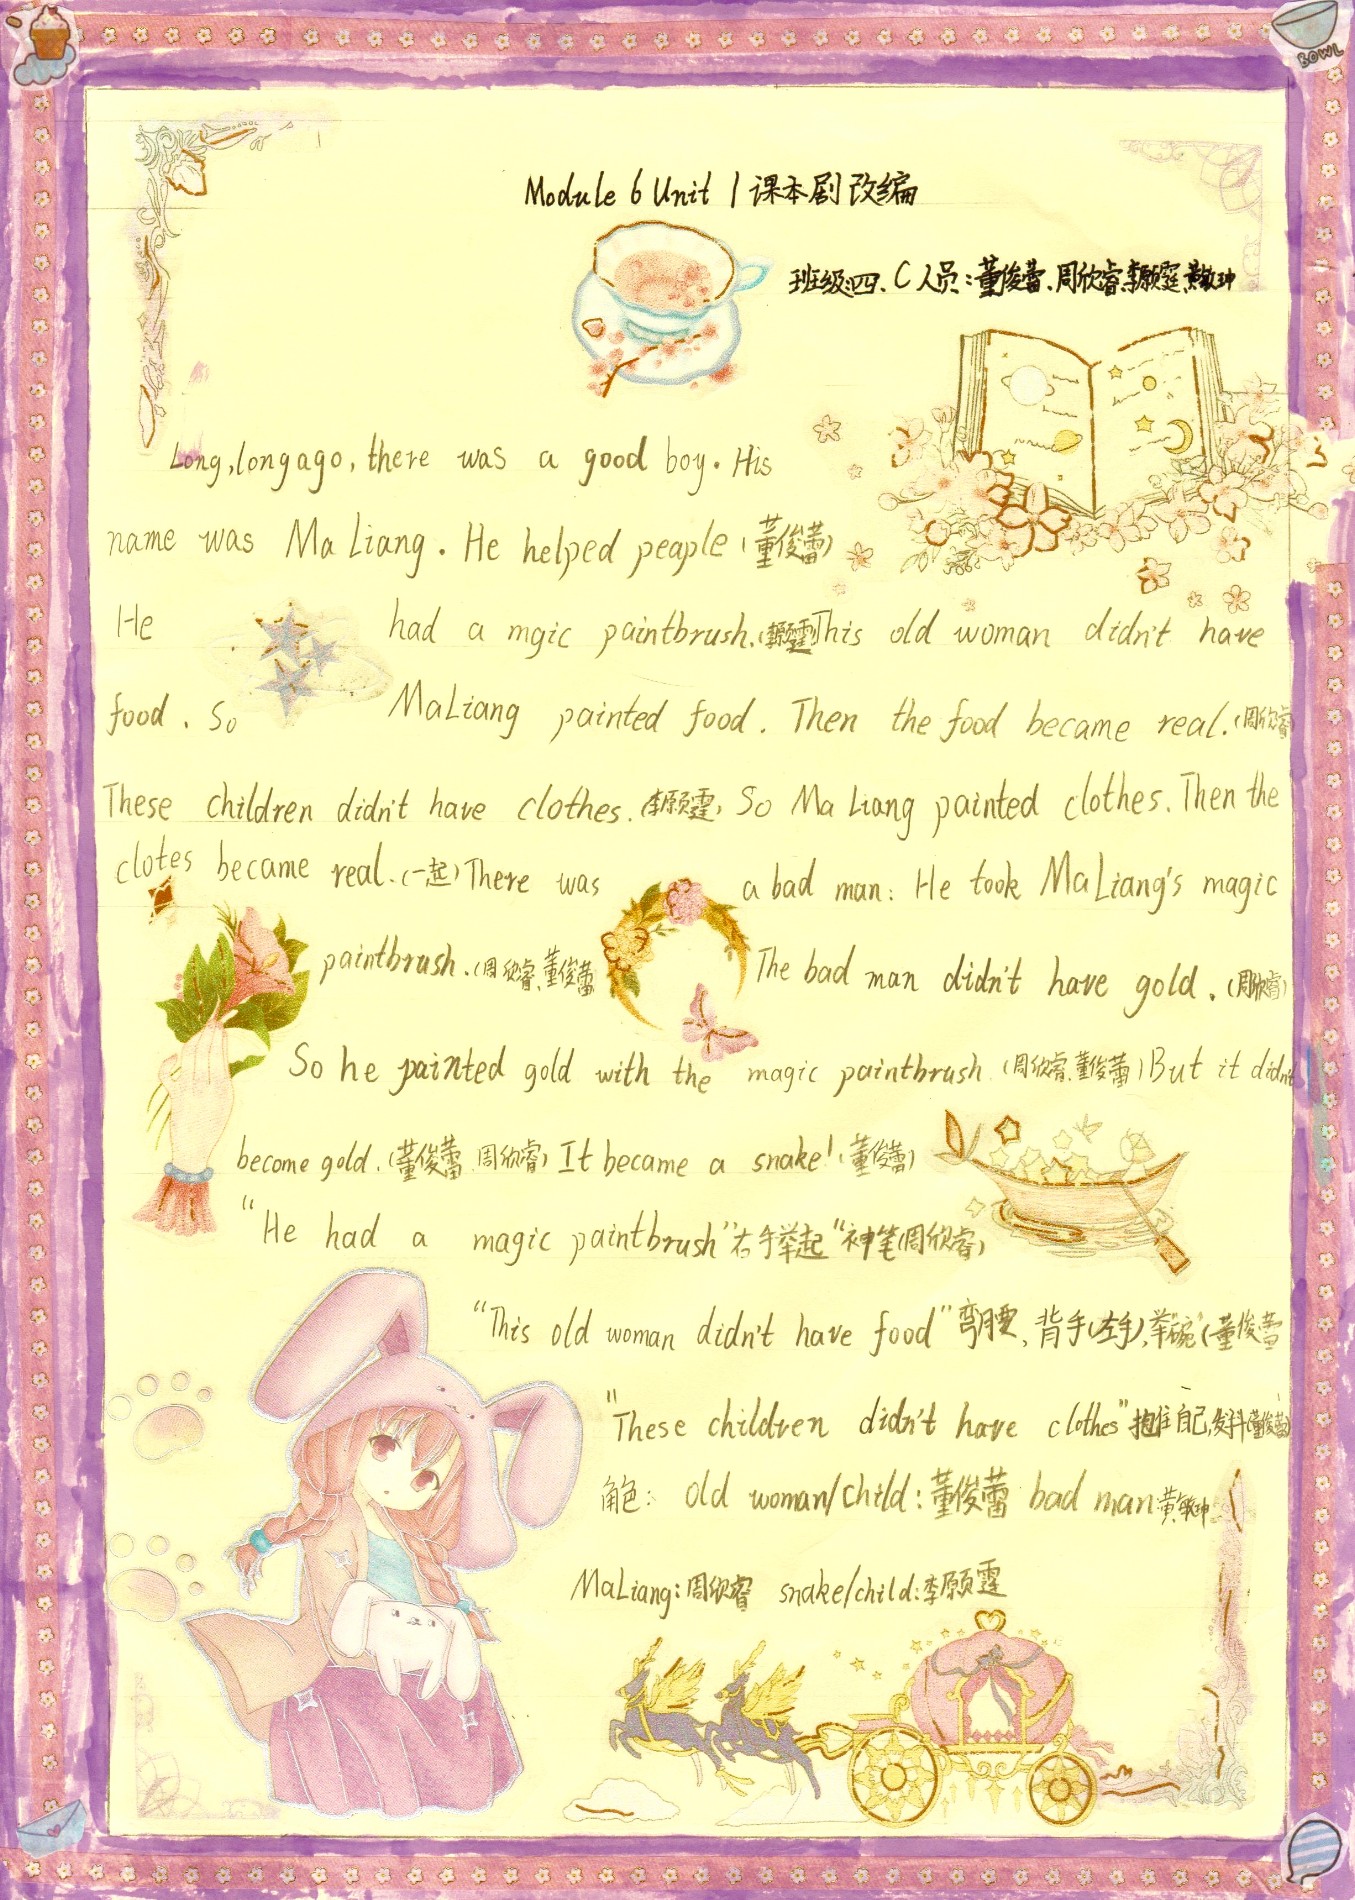 BOWL
Module 6 Unit 1 课本剧改编
班级:四、C 人员:董俊蕾、周欣睿、李愿霆、黄敏珅
Long,long ago, there was a good boy. His
name was Ma Liang. He helped peaple (董俊蕾)
He had a mgic paintbrush.(李愿霆)This old woman didn't have
food. So MaLiang painted food. Then the food became real.(周欣睿)
These children didn't have clothes.(李愿霆) So Ma Liang painted clothes. Then the
clotes became real.(一起) There was a bad man: He took MaLiang's magic
paintbrush.(周欣睿、董俊蕾 The bad man didn't have gold. (周欣睿)
So he painted gold with the magic paintbrush (周欣睿、董俊蕾) But it didn't
become gold.(董俊蕾 周欣睿) It became a snake!(董俊蕾)
"He had a magic paintbrush"右手举起"神笔(周欣睿)
"This old woman didn't have food"弯腰,背手(左手),举"碗"(董俊蕾
"These children didn't have clothes"抱住自己,发抖(董俊蕾)
角色: old woman/child:董俊蕾 bad man:黄敏珅
MaLiang:周欣睿 snake/child:李愿霆